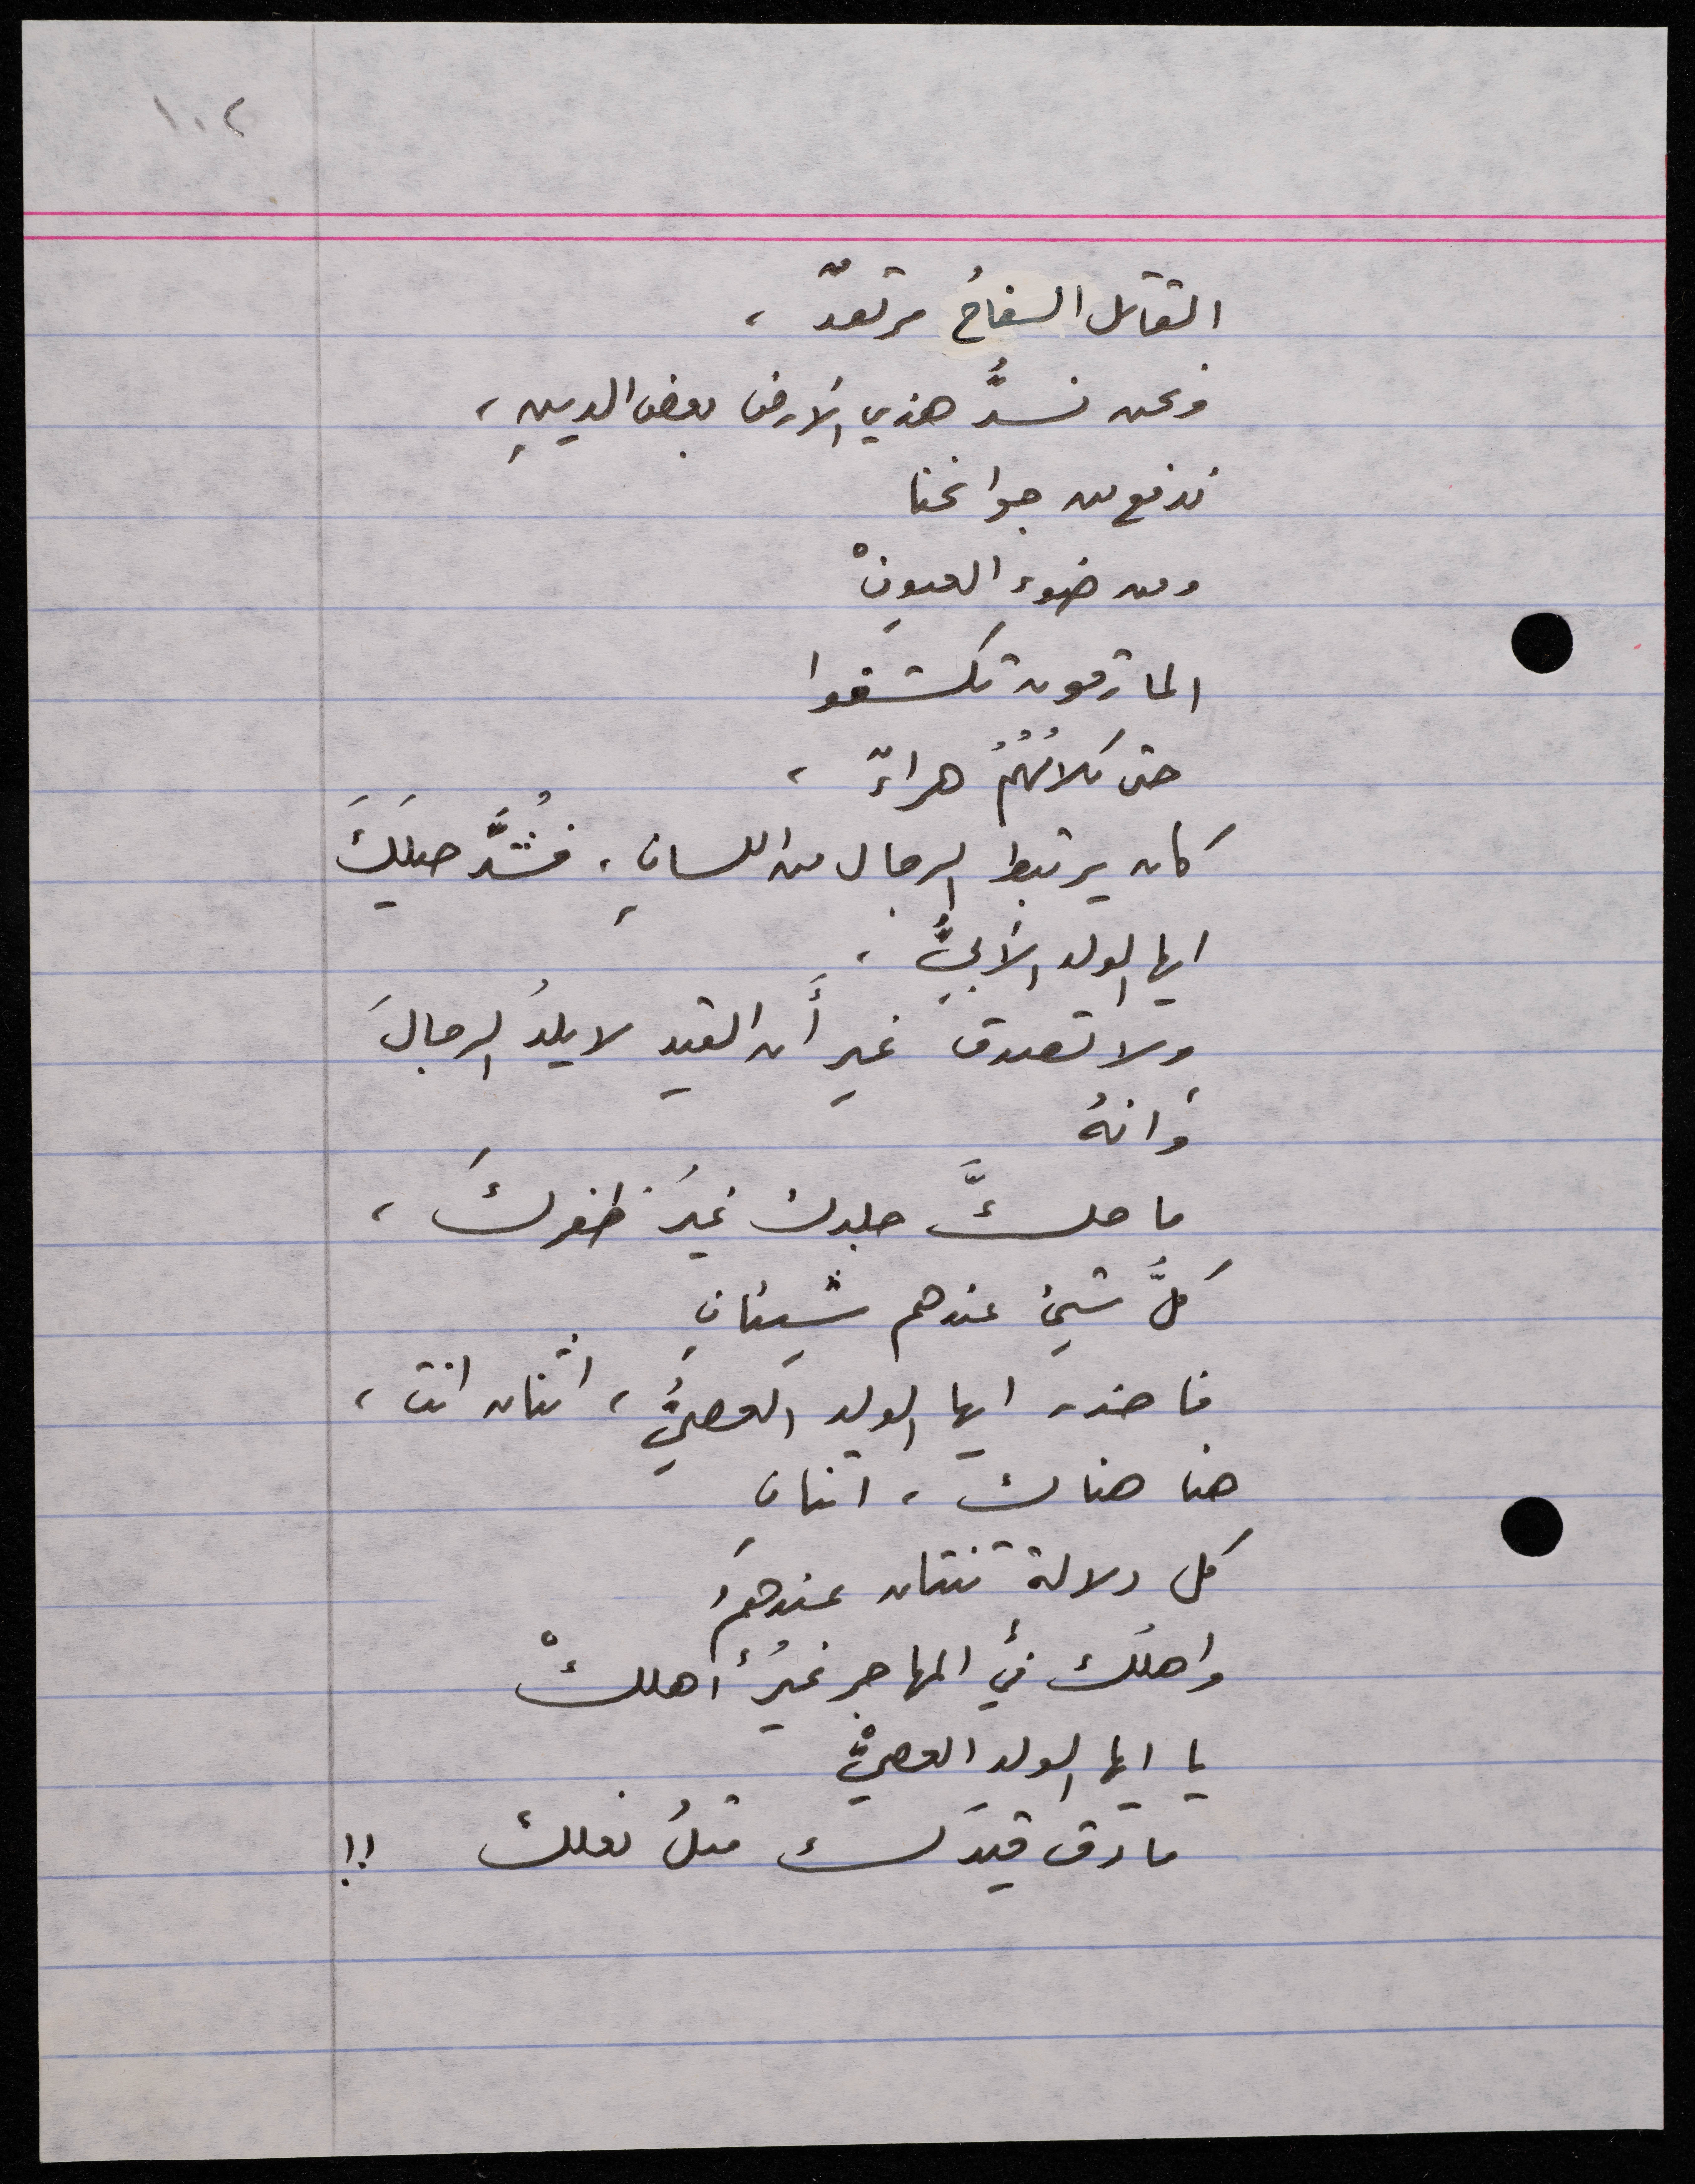 ١٠٢
القاتل السفاحُ مرتعدٌ ،
ونحن نسدُّ هذي الأرض بعض الدينِ ،
ندفع من جوانحنا
ومن ضوء العيونْ
المارقون تكشفوا
حتى كلامُهُمُ هراءٌ ،
كان يرتبط الرجال من اللسانِ ، فشُدَّ حبلَكَ
ايها الولد الأبيُّ ،
ولا تصدق غير أَن القيد لا يلدُ الرجالَ
وَانهُ
ما حكَّ جلدك غيرُ ظفركَ ،
كلُّ شيئ عندهم شيئانِ
فاحذر ايها الولد العصيُّ ، اثنان انت ،
هنا هناك ، اثنانِ
كل دلالة ثنتان عندهمُ
واهلُك في المهاجر غيرُ أهلكْ
يا ايها الولد العصيْ
ما دق قيدَك مثلُ نعلك !!